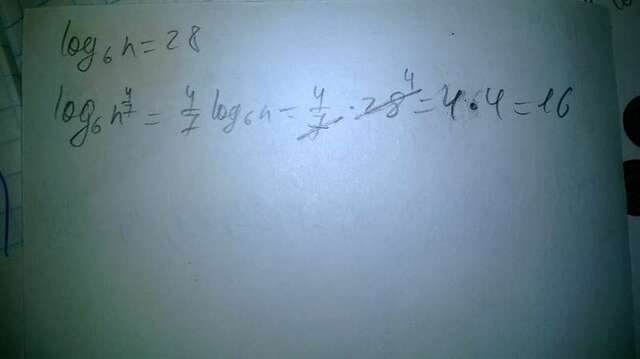 log₆ n = 28
log₆ n^(4/7) = 4/7 log₆ n = 4/7 · 28 4 = 4 · 4 = 16